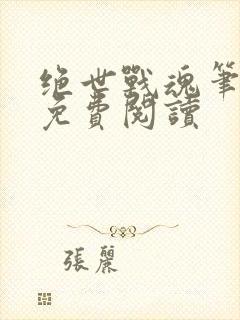 绝世戰魂筆
免費閱讀
張麗